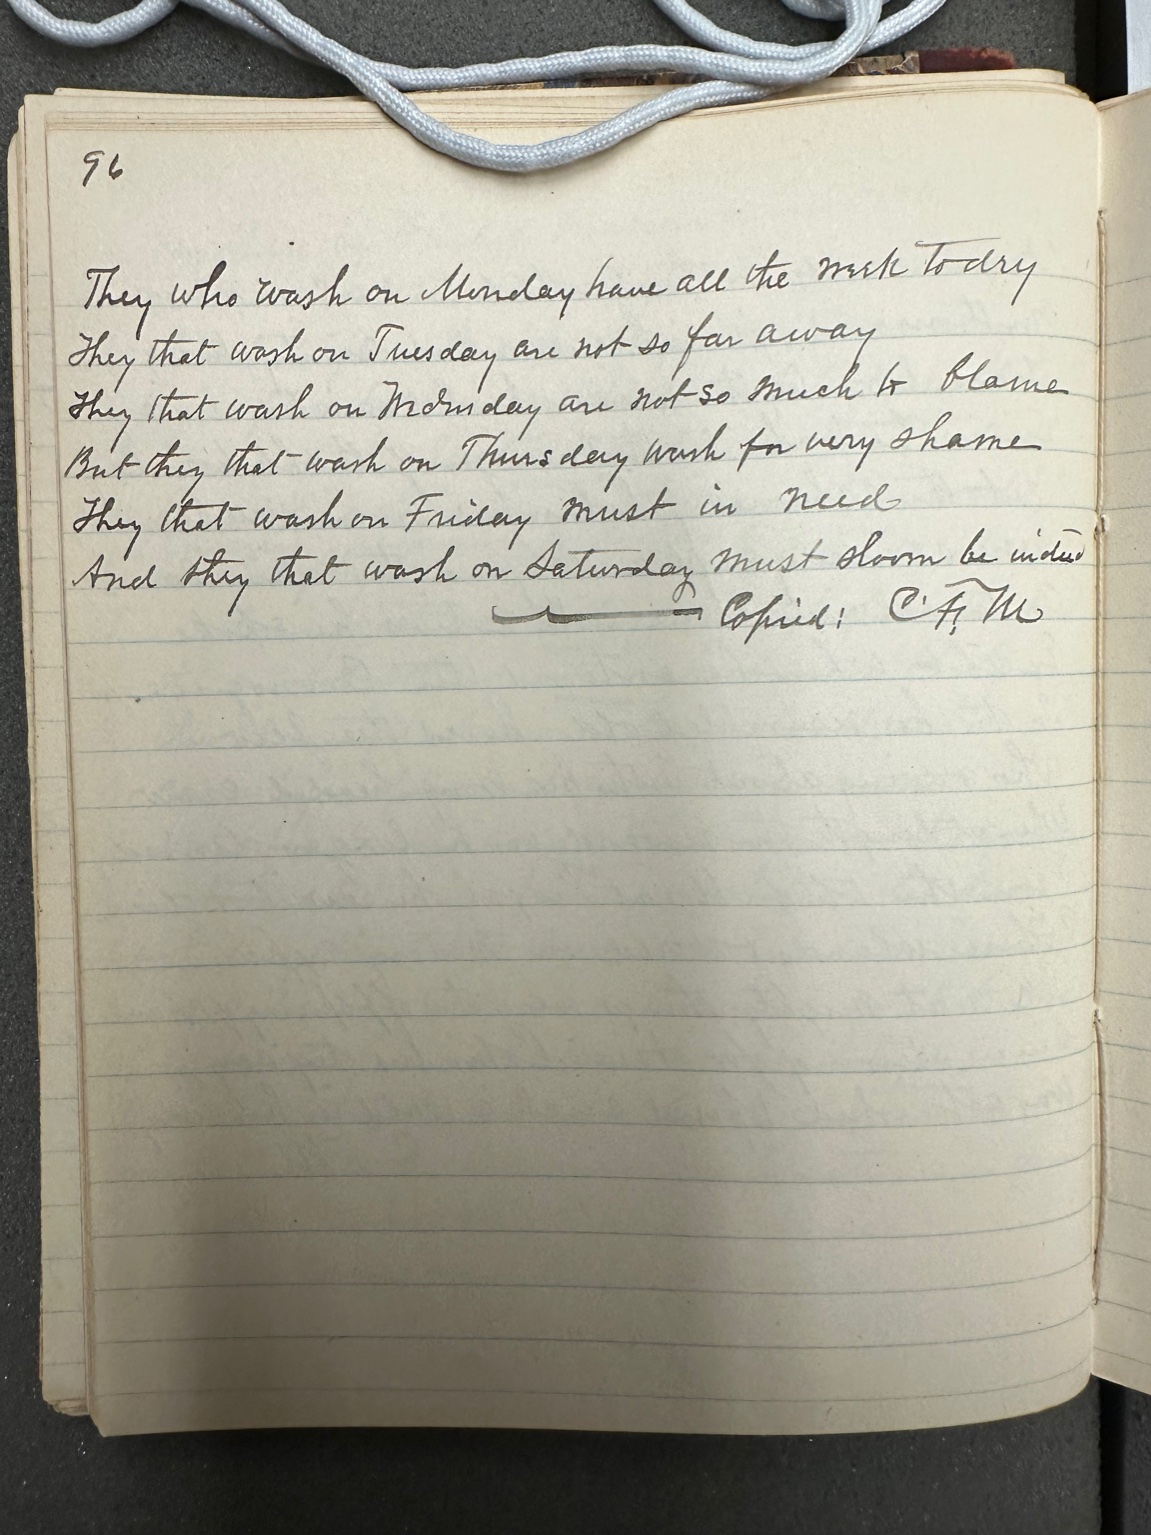 96
They who wash on Monday have all the week to dry
They that wash on Tuesday are not so far away
They that wash on Wednesday are not so much to blame
But they that wash on Thursday wash for very shame
They that wash on Friday must in need
And they that wash on Saturday must sloom be indeed
Copied: C. F. M